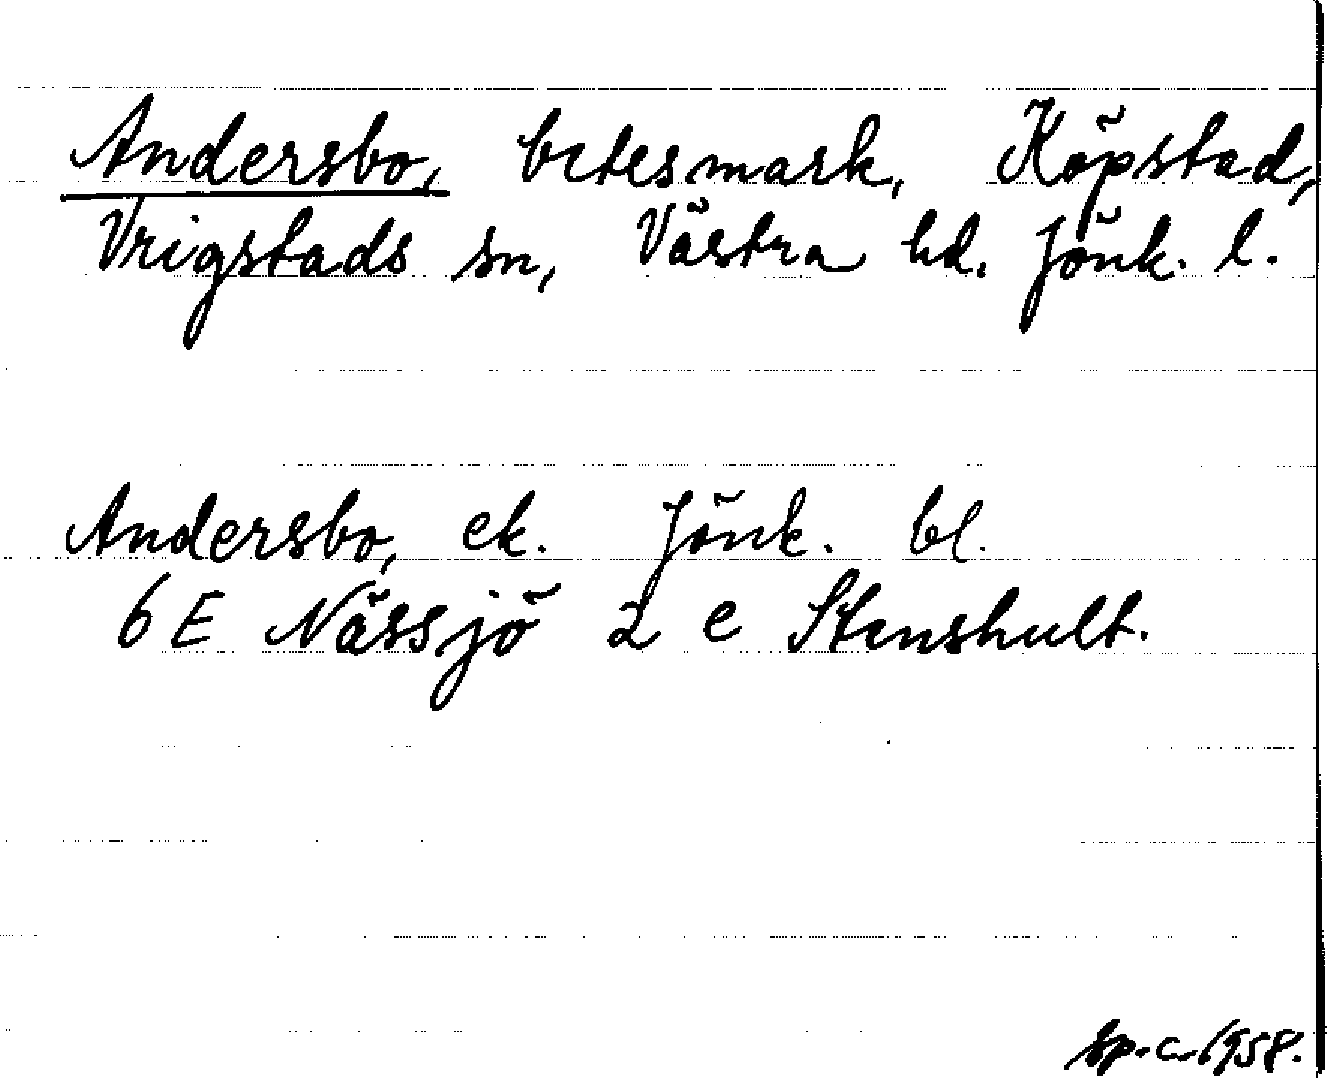 Andersbo, betesmark, Köpstad,
Vrigstads sn, Västra hd. Jönk. l.
Andersbo, ek. Jönk. bl.
6 E Nässjö 2 e Stenshult.
sp.c. 1958.